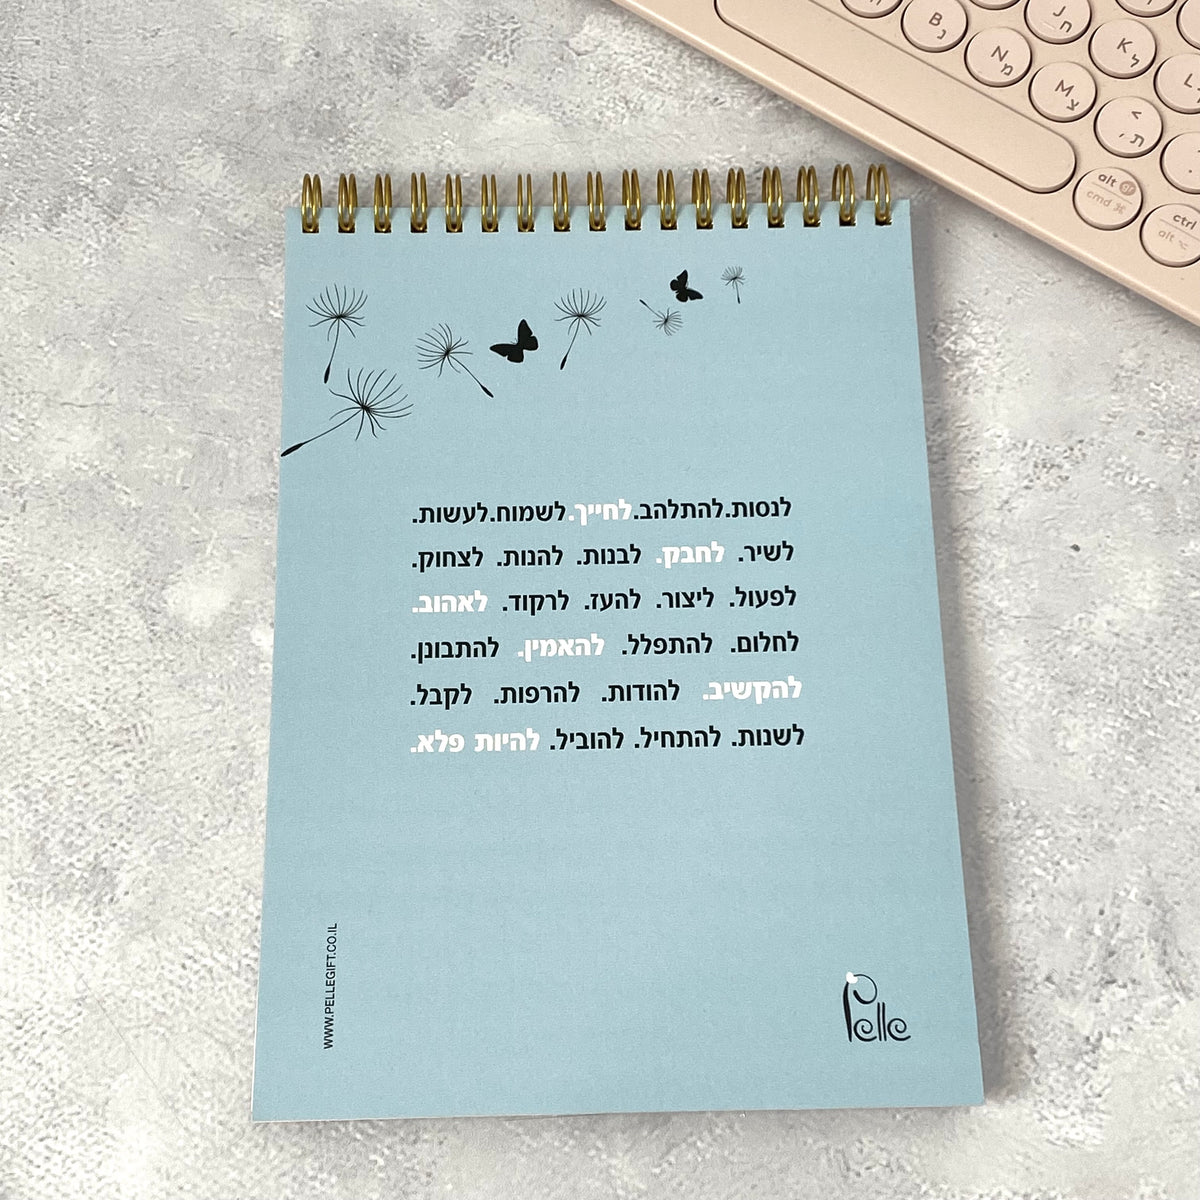 לנסות.להתלהב.לחייך.לשמוח.לעשות.
לשיר. לחבק. לבנות. להנות. לצחוק.
לפעול. ליצור. להעז. לרקוד. לאהוב.
לחלום. להתפלל. להאמין. להתבונן.
להקשיב. להודות. להרפות. לקבל.
לשנות. להתחיל. להוביל. להיות פלא.
WWW.PELLEGIFT.CO.IL
Pelle
B נ
N מ
M צ
ח
K ל
L
< ת ,
alt gr
cmd ⌘
ctrl
alt ⌥